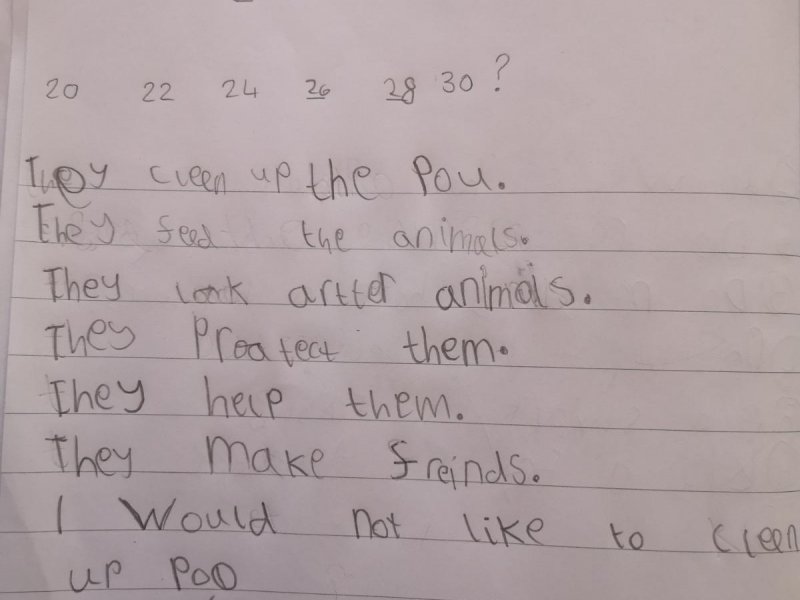 20 22 24 26 28 30 ?
They cleen up the Pou.
They feed the animals.
They look artter animals.
They Proatect them.
They help them.
They make freinds.
I would not like to cleen
up poo